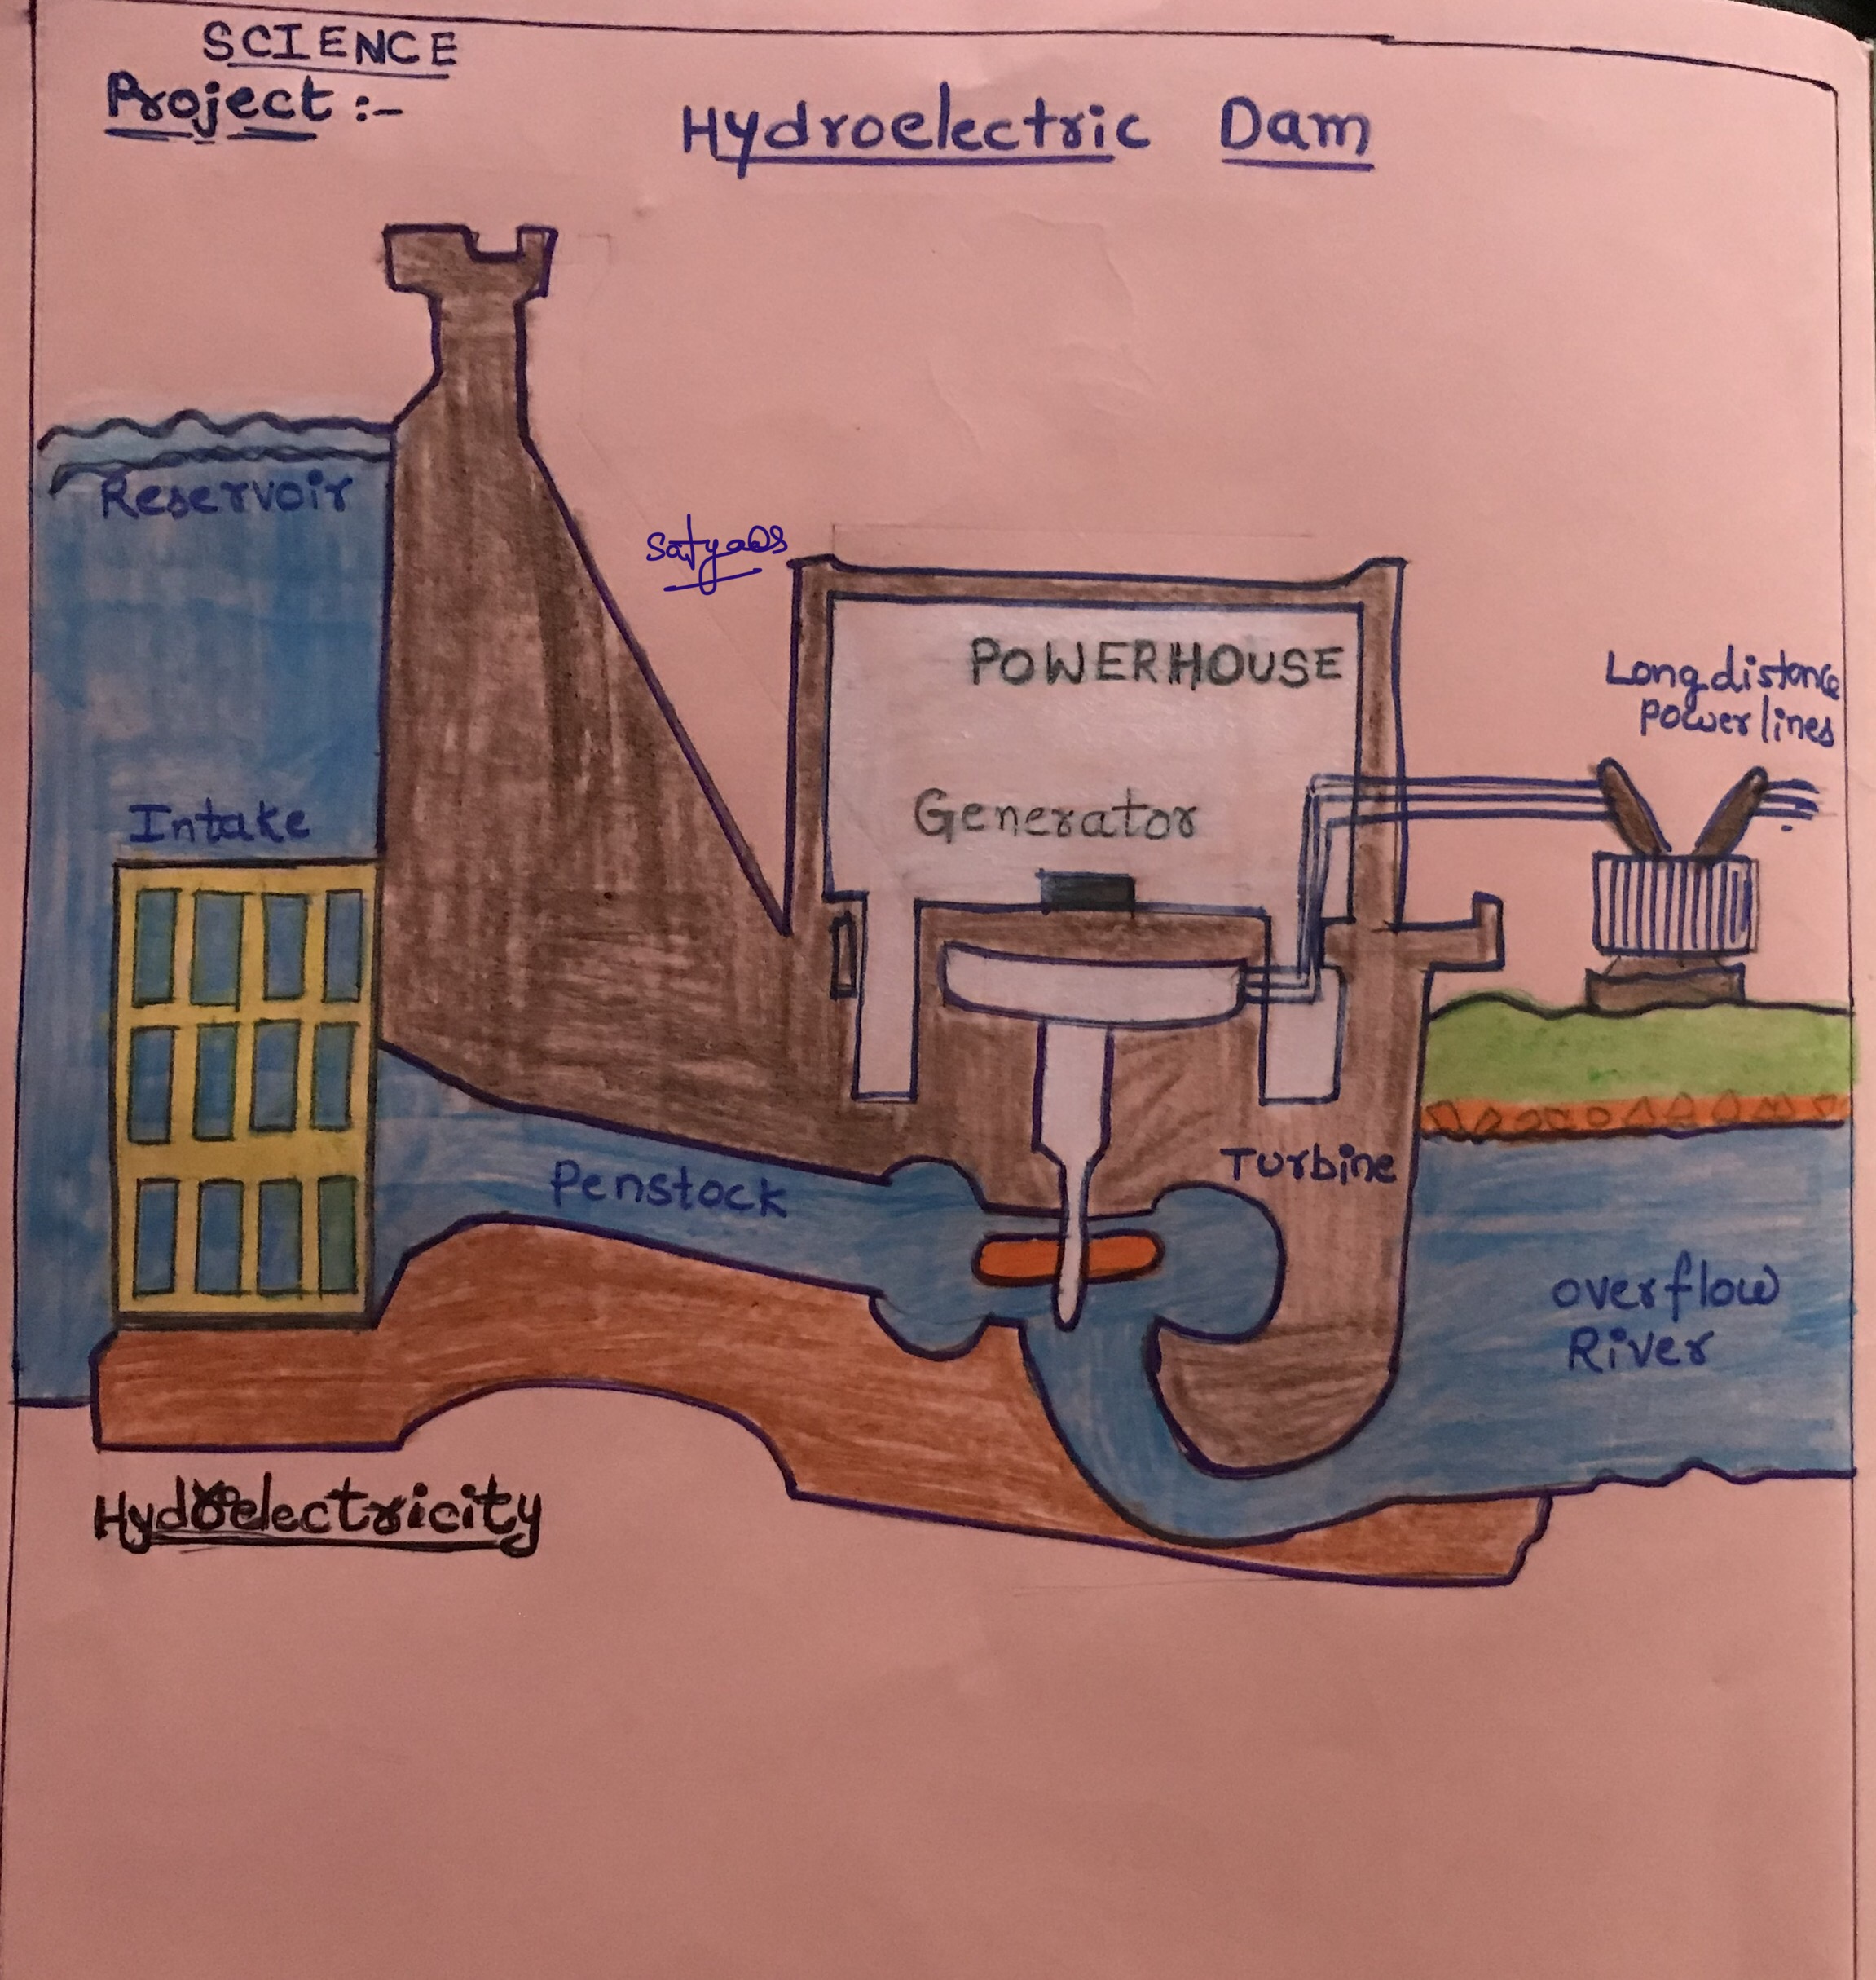 SCIENCE
Project :-
Hydroelectric Dam
Reservoir
SatyaOS
POWERHOUSE
Long distance
Power lines
Intake
Generator
Penstock
Turbine
overflow
River
Hydroelectricity